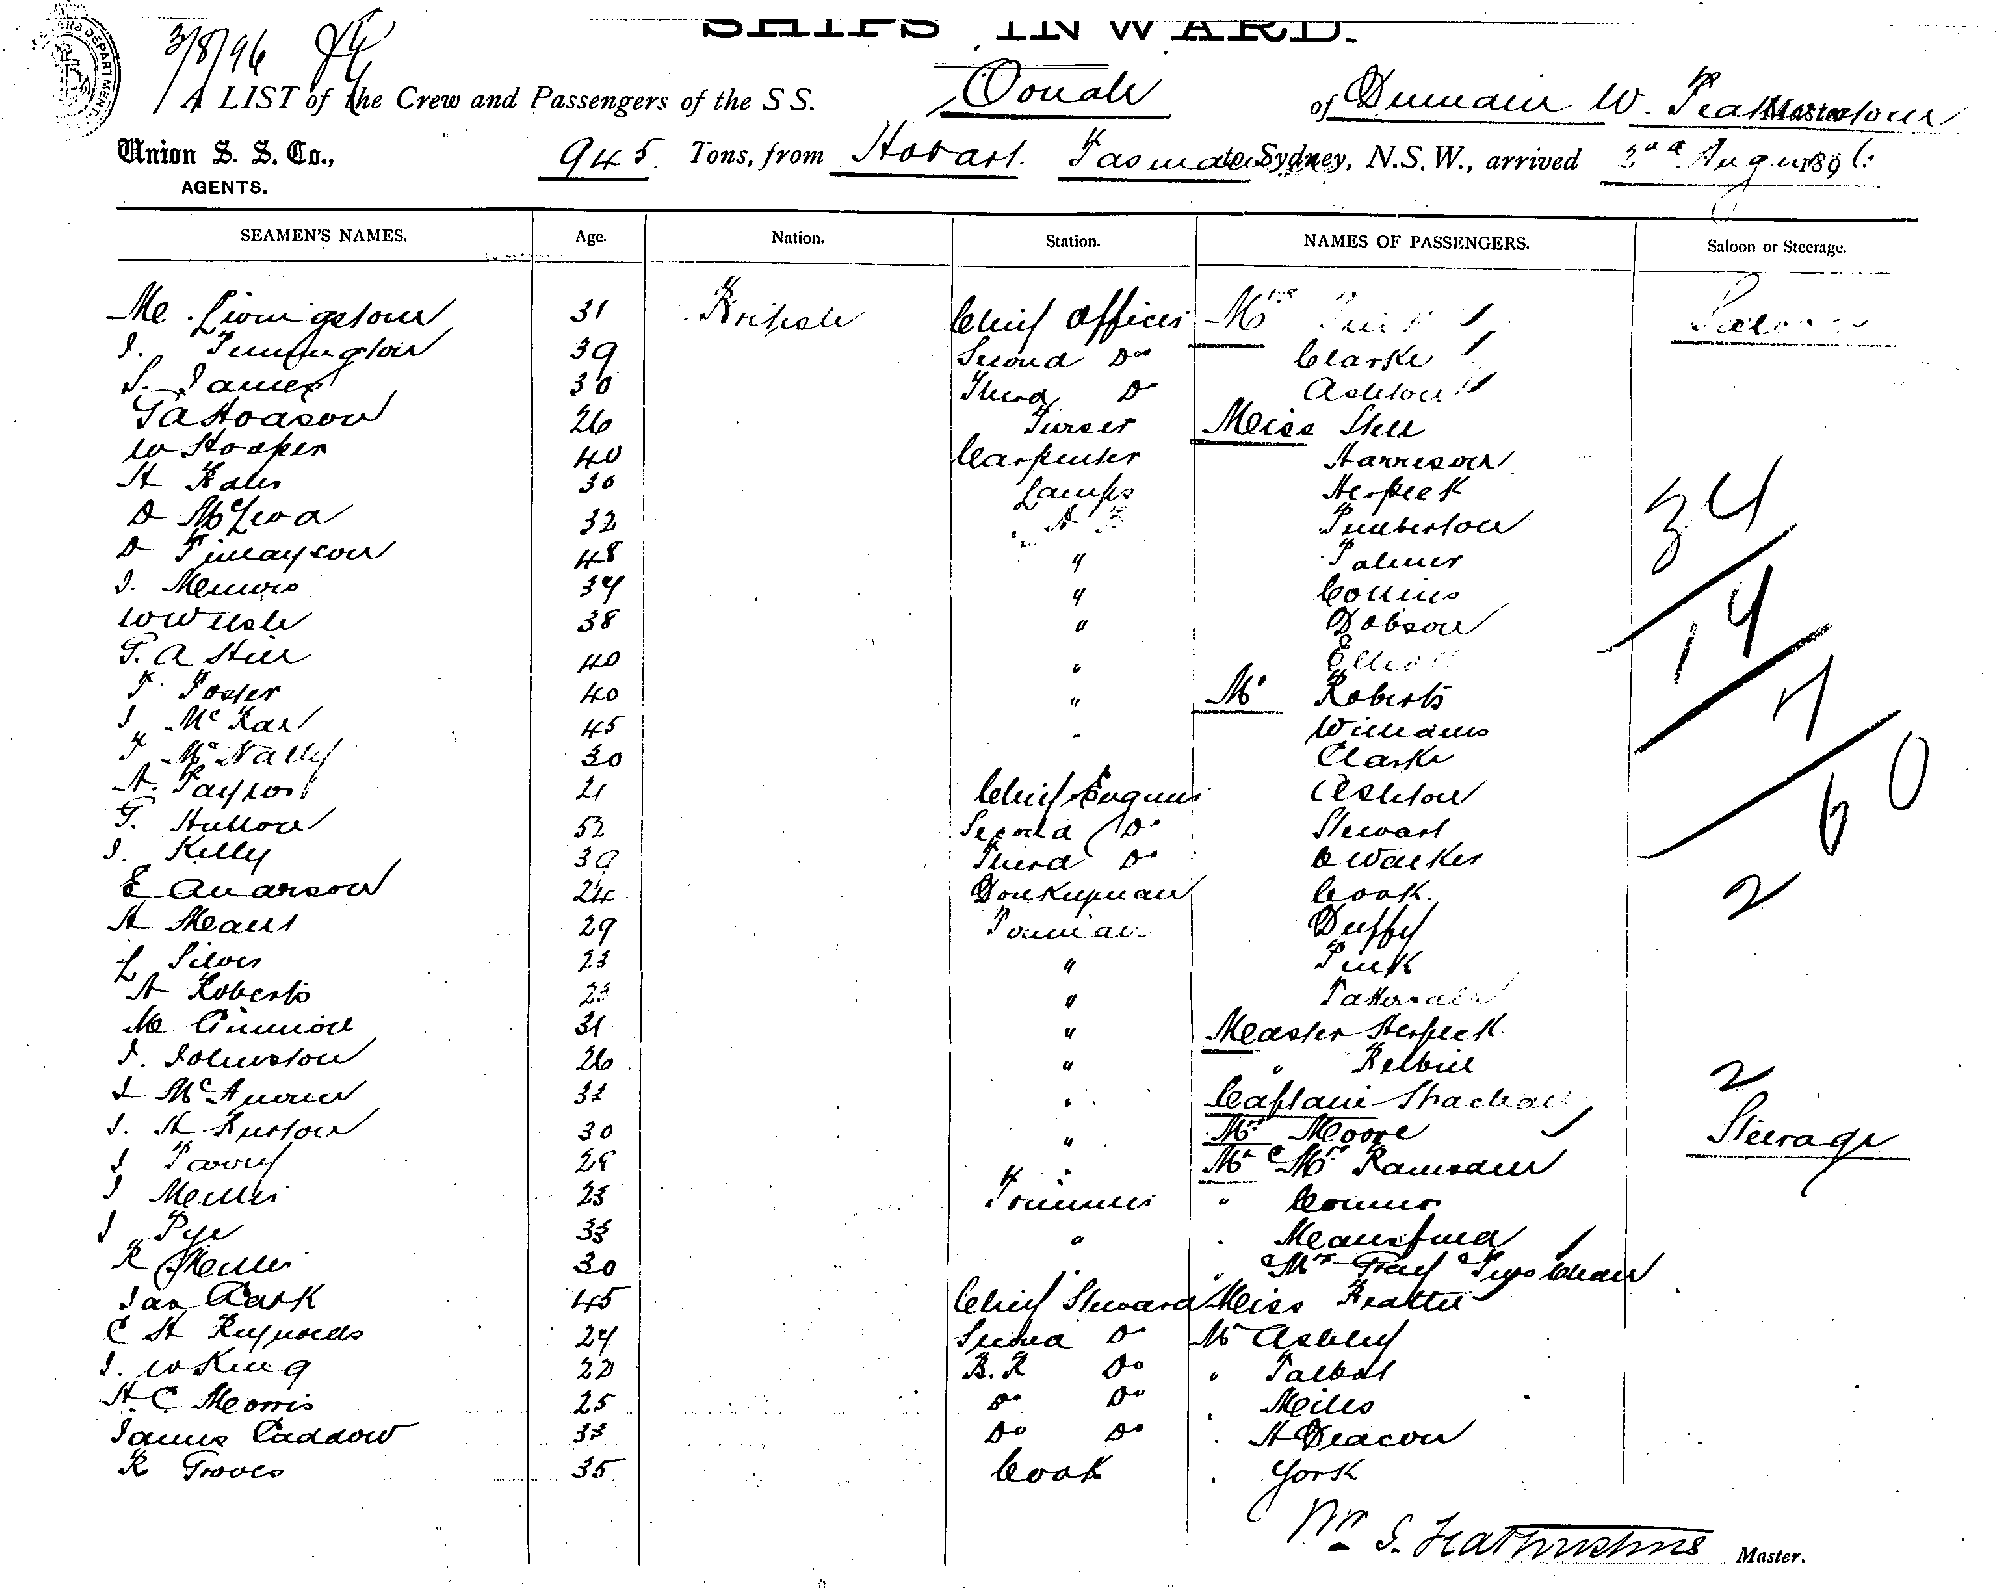 SHIPS INWARD.
3/8/96
A LIST of the Crew and Passengers of the S S. Oonah of Dunedin W. Featherstone Master
Union S. S. Co., 945 Tons, from Hobart Tasmania to Sydney, N.S.W., arrived 2nd August 1896
AGENTS.
SEAMEN'S NAMES. Age. Nation. Station. NAMES OF PASSENGERS. Saloon or Steerage.
M Livingstone 31 British Chief Officer Mrs Pink Saloon
J. Pennington 39 Second Do Clarke
S. James 30 Third Do Ashton
G A Hodson 26 Purser Miss Stell
W Hooper 40 Carpenter Harrison
H Bates 30 Lamps Herpick
D McLeod 32 A B Pemberton
D Finlayson 48 " Palmer
J. 34 " Collins
W Welsh 38 " Dobson
G. A Hill 40 " Elliott
F Foster 40 " Mr Roberts
J McRae 45 " Williams
F McNally 30 Clarke
A. 21 Chief Engineer Ashton
G. Hutton 52 Second Do Stewart
J. Kelly 39 Third Do Walker
E Anderson 24 Donkeyman Cook
H Mears 29 Fireman Duffy
L Silver 23 " Pink
H Roberts 23 " Tattersall
M 31 " Master Herpick
J. Johnston 26 " " Belbin
J McAndrew 33 " Captain Strachan
J. H Burton 30 " Mrs Moore Steerage
J Parry 28 " Mr & Mrs Ramsden
J Mellis 23 Trimmer " Connor
J Pye 33 " " Mansfield
R 30 " " & Mrs Gray & Two Children
Jas Park 45 Chief Steward Miss Beattie
C H Reynolds 24 Second Do Mr Ashley
J. W King 22 B. R Do " Talbot
H. C Morris 25 Do Do " Miles
James Caddow 33 Do Do " H Deacon
R Groves 35 Cook " York
34
14
7
60
2
2
Wm G. Featherstone Master.